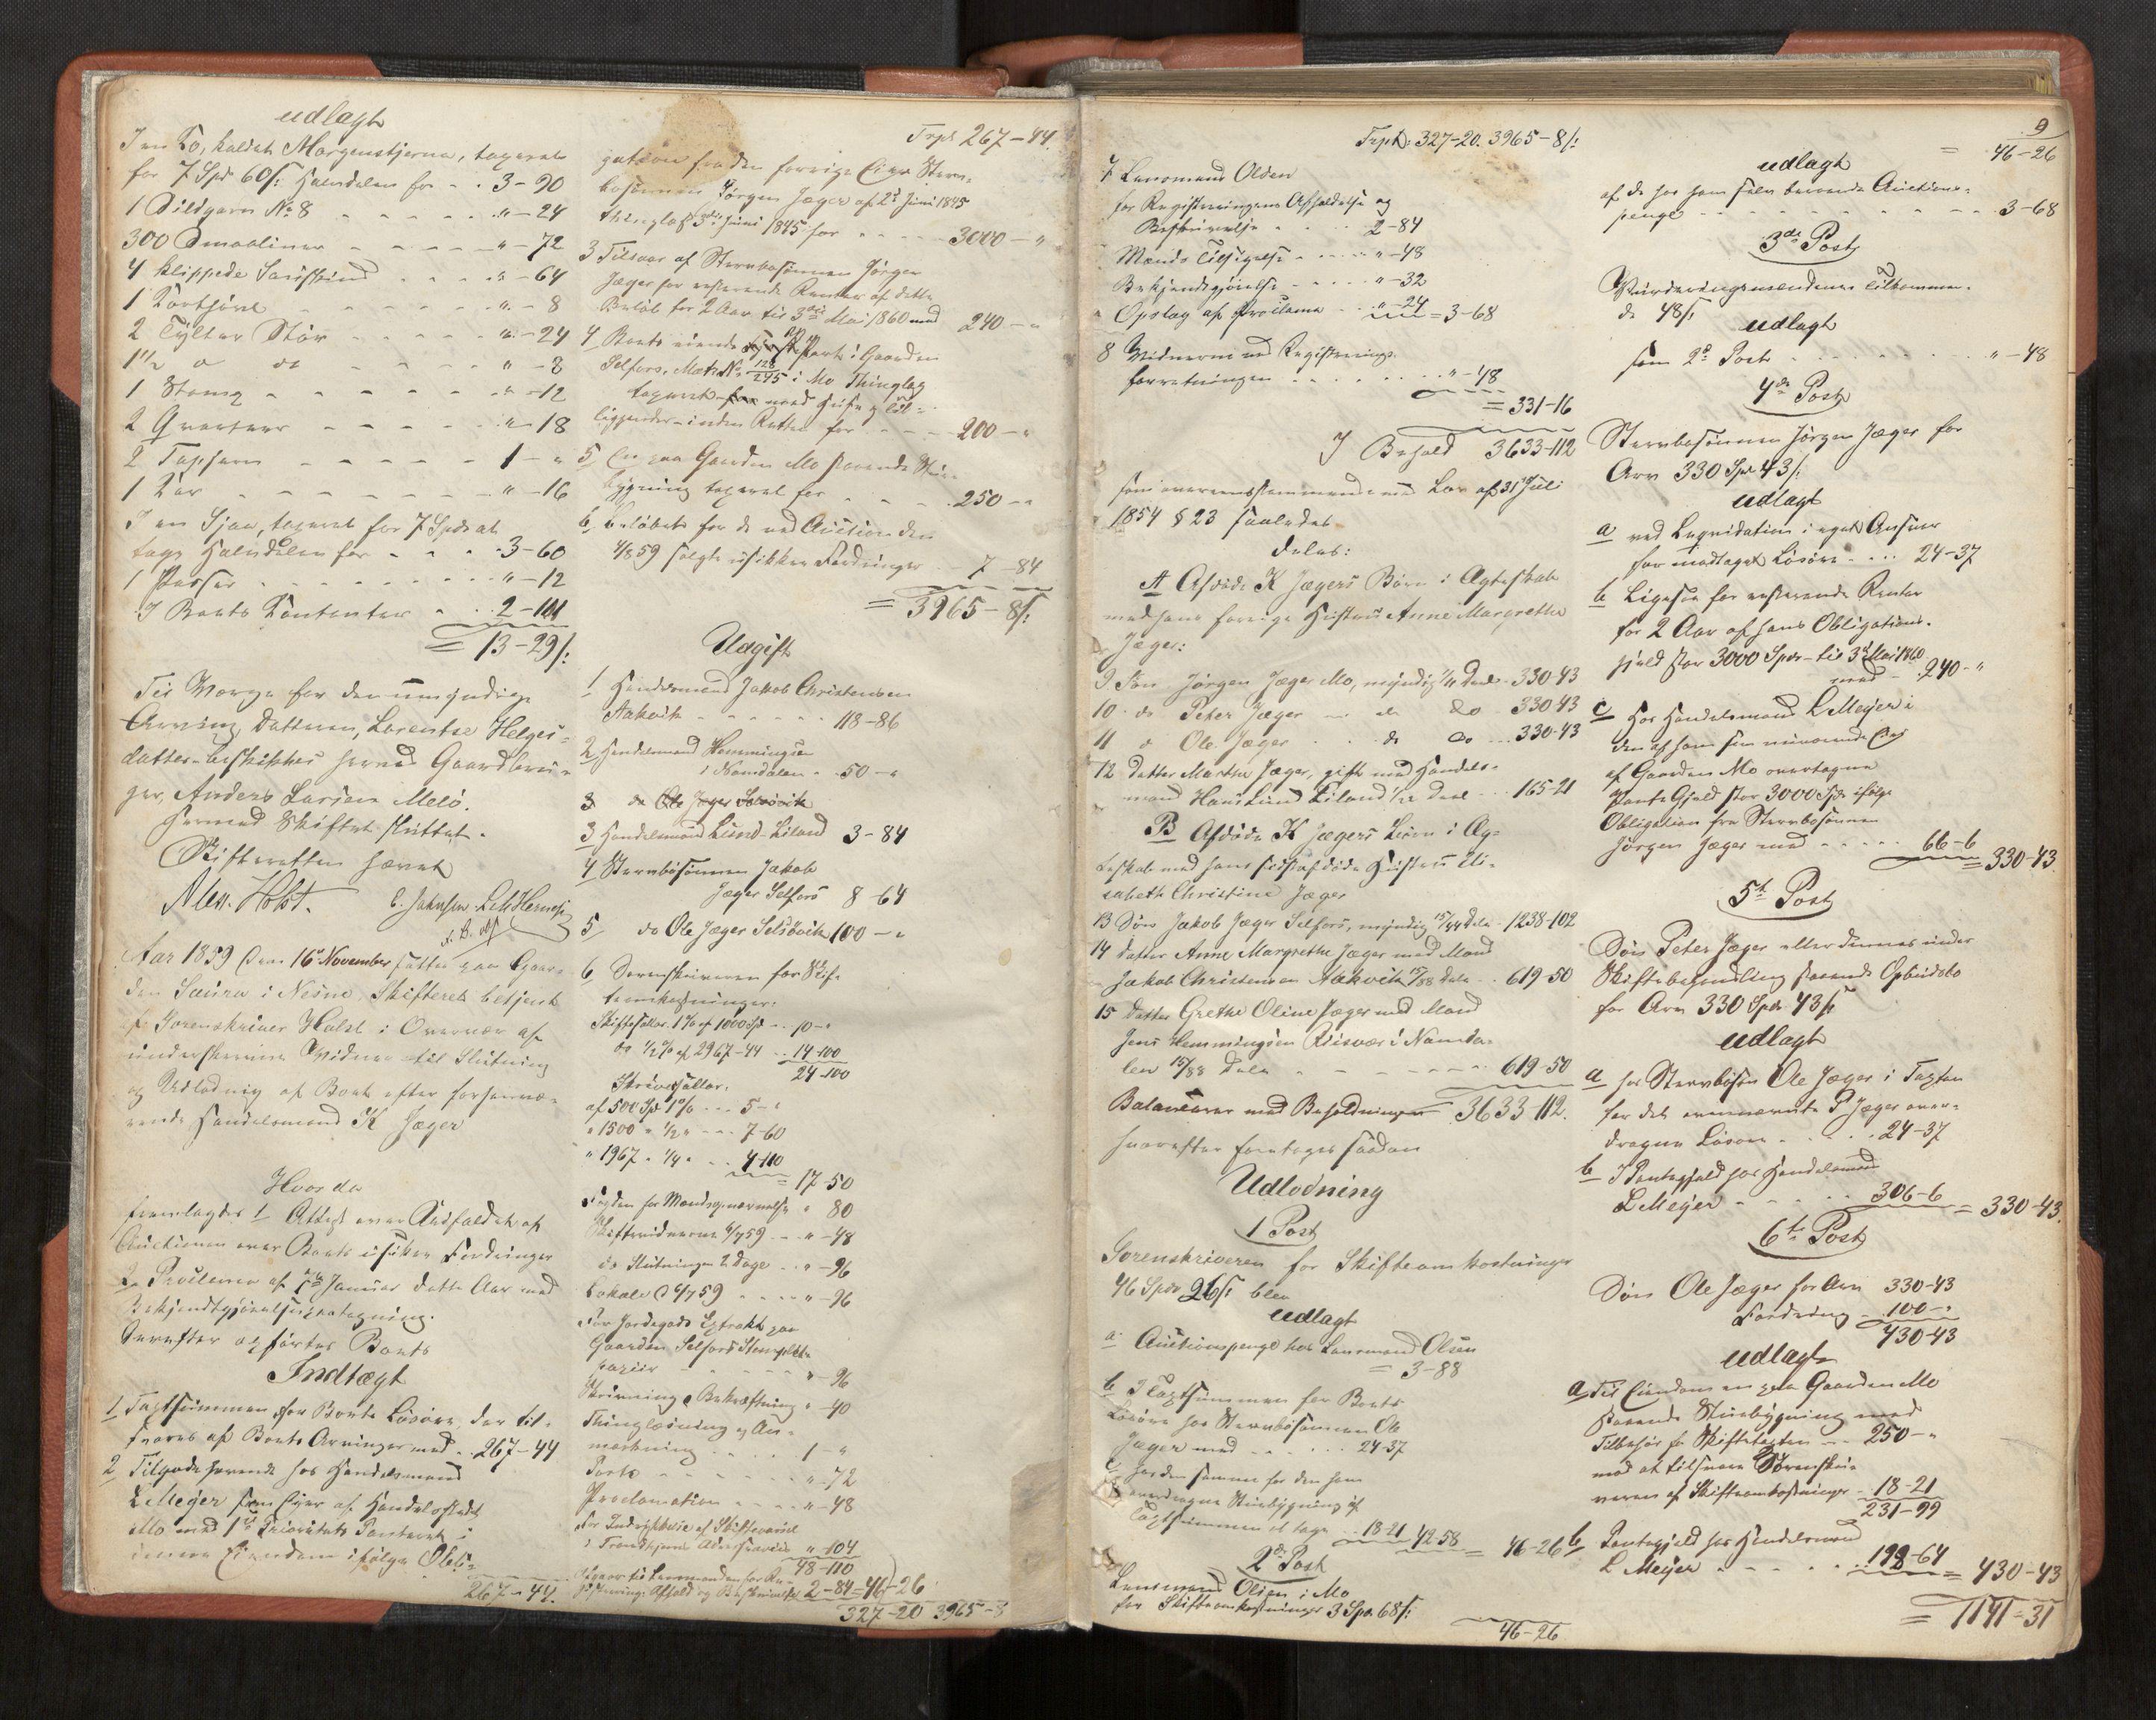 udlagt
I en Ko, kaldet Morgenstjerne, taxeret
for 7 Spd 60 s: Halvdelen for - - 3-90
1 Sildgarn No 8 - - - - - " - 24
300 Smaaliner - - - - - " - 72
4 klippede Saueskind - - - - " - 64
1 - - - - - " - 8
2 Tylter Stör - - - - - " - 24
1 1/2 do do - - - - - " - 8
1 Stamp - - - - - " - 12
2 Qvarterer - - - - - " - 18
2 - - - - - 1 - "
1 Kar - - - - - " - 16
I en Sjaa, taxeret for 7 Spd at
tage Halvdelen for - - - 3-60
1 Passer - - - - - " - 12
I Boets Contanter - - 2-101
= 13-29 s:
Til Værge for den umyndige
Arving Datteren, Lorentse Helges-
datter beskikkes herved Gaardbru-
ger, Anders Larsen Melö.
Hermed Skiftet sluttet.
Skifteretten hævet
Alex. Holst. E. Johnsen
Aar 1859 den 16de November sattes paa Gaar-
den Saura i Nesne Skifteret betjent
af Sorenskriver Holst i Overvær af
underskrevne Vidner til Slutning
og Udlodning af Boet efter forhenvæ-
rende Handelsmand K Jæger
Hvorda
fremlagdes 1 Attest over Udfaldet af
Auctionen over Boets usikre Fordringer
2 Proclama af Januar dette Aar med
Bekjendtgjörelsespaategning.
Derefter opförtes Boets
Indtægt
1 Taxtsummen for Boets Lösöre, der til-
svares af Boets Arvinger med . . 267-44
2 Tilgodehavende hos Handelsmand
L Meyer som Eier af Handelsstedet
Mo med 1ste Prioritets Panteret i
denne Eiendom ifölge Obli-
267-44.
Trspt 267-44.
gation fra den forrige Eier Sterv-
bosönnen Jörgen Jæger af 2d Juni 1845
thinglæst 3die Juni 1845 for - - - 3000 - "
3 Tilsvar af Stervbosönnen Jörgen
Jæger for resterende Renter af dette
Beløb for 2 Aar til 3die Mai 1860 med 240 - "
4 Boets eiende Part i Gaarden
Selfors, Matr No 128/245 i Mo Thinglag
taxeret med Huse og til-
liggender inden Retten for - - - 200 - "
5 En paa Gaarden Mo staaende Stue-
bygning taxeret for - - - 250 - "
6 Belöbet for de ved Auction den
4/8 59 solgte usikkre Fordringer 7-84
= 3965-8 s:
Udgift
1 Handelsmand Jakob Christensen
Aakvik - - - - - 118-86
2 Handelsmand Hemmingsen
i Namdalen - . 50 - "
3 do Ole Jæger Selsövik
3 Handelsmand Lund-Liland 3-84
4 Stervbosönnen Jakob
Jæger Selfors 8-64
5 do Ole Jæger Selsövik 100 - "
6 Sorenskriveren for Skif-
teomkostninger:
Skiftesallar. 1% af 1000 Spd - - 10 - "
do 1/2% af 2967-44 - - 14-100
24-100
Skriversallar.
af 500 Spd 1% - - - 5 - "
" 1500 " 1/2 " - - - 7-60
" 1967 " 1/4 " - - 4-110
= 17-50
Fogden for Mændsopnævnelse " 80
Skiftevidnerne 4/7 59 - - " - 48
do Slutningen 2 Dage - - " - 96
Lokale 4/7 59 - - - - " - 96
For Jordegods Extrakt paa
Gaarden Selfors Stemplet
papiir - - - - " - 96
Skrivning & Bekræftning " - 40
Thinglæsning og An-
mærkning - - - 1 - "
Porto - - - - " - 72
Proclamation - - - - " - 48
For Indrykkelse af Skiftevarsel
i Trondhjems Adresseavis " - 104
48-110
Lensmanden for Re-
gistrerings Afhold og Beskrivelse 2-84 = 46-26
327-20 3965-8
Trspt: 327-20. 3965-8 s:
7 Lensmand Olsen
for Registreringens Afholdelse og
Beskrivelse - - - 2-84
Mænds Tilsigelse - - - " - 48
Bekjendtgjörelse - - - - " - 32
Opslag af Proclama - - " - 24 = 3-68
8 Vidnerne ved Registrerings-
forretningen - - - - - " - 48
= 331-16
I Behold 3633-112
som overeensstemmende med Lov af 31 Juli
1854 § 23 saaledes
deles:
A Afdöde K Jægers Börn i Ægteskab
med hans forrige Hustru Anne Margrethe
Jæger:
9 Sön Jörgen Jæger Mo, myndig 1/11 Deel - 330-43
10 do Peter Jæger - do do - 330-43
11 do Ole Jæger - - do do - 330-43
12 Datter Marthe Jæger, gift med Handels-
mand Hans Lund Liland 1/22 Deel - - 165-21
B Afdöde K Jægers Börn i Æg-
teskab med hans sidstafdöde Hustru Eli-
sabeth Christine Jæger
13 Sön Jakob Jæger Selfors, myndig 15/44 Dele - 1238-102
14 Datter Anne Margrethe Jæger med Mand
Jakob Christensen Aakvik 15/88 Dele - - 619-50
15 Datter Grethe Oline Jæger med Mand
Jens Hemmingsen Riisvær i Namda-
len 15/88 Dele - - - - - 619-50
Balancerer med Beholdningen 3633-112.
hvorefter foretoges saadan
Udlodning
1 Post
Sorenskriveren for Skifteomkostninger
46 Spd 26 s blev
udlagt
a Auctionspenge hos Lensmand Olsen
= 3-88
b I Taxtsummen for Boets
Lösöre hos Stervbosönnen Ole
Jæger med - - - - 24-37
c hos den samme for den ham
overdragne Stuebygning af
Taxtsummen at tage - - 18-21 42-58 = 46-26
2den Post
Lensmand Olsen i Mo
for Skifteomkostninger 3 Spd 68 s:
46-26
9
= 46-26
udlagt
af de hos ham selv beroende Auctions-
penge - - - - - - 3-68
3die Post
Vurderingsmændenes Tilkommen-
de 48 s:
udlagt
som 2d Post - - - - - " - 48
4de Post
Stervbosönnen Jörgen Jæger for
Arv 330 Spd 43 s:
udlagt
a ved Liqvidation i eget Ansvar
for modtaget Lösöre - - - 24-37
b Ligesaa for resterende Renter
for 2 Aar af hans Obligations-
gjæld stor 3000 Spd - til 3d Mai 1860
med - 240 - "
c Hos Handelsmand L Meyer i
den af ham som nuværende Eier
af Gaarden Mo overtagne
Pante Gjæld stor 3000 Spd ifölge
Obligation fra Stervbosönnen
Jörgen Jæger med - - - - 66-6
= 330-43.
5te Post
Sön Peter Jæger eller dennes under
Skiftebehandling staaende Opbudsbo
for Arv 330 Spd 43 s
udlagt
a hos Stervbosön Ole Jæger i Taxten
for det ovennævnte P Jæger over-
dragne Lösöre - - - - 24-37
b I Pantegjæld hos Handelsmand
L Meyer - - - - - 306-6 = 330-43.
6te Post
Sön Ole Jæger for Arv 330-43
Fordring - 100 - "
430-43
udlagt
a Til Eiendom en paa Gaarden Mo
staaende Stuebygning med
Tilbehör for Skiftetaxten - - 250 - "
mod at tilsvare Sorenskri-
veren af Skifteomkostninger - 18-21
231-99
b Pantegjæld hos Handelsmand
L Meyer - - - - 198-64 = 430-43
= 1141-31